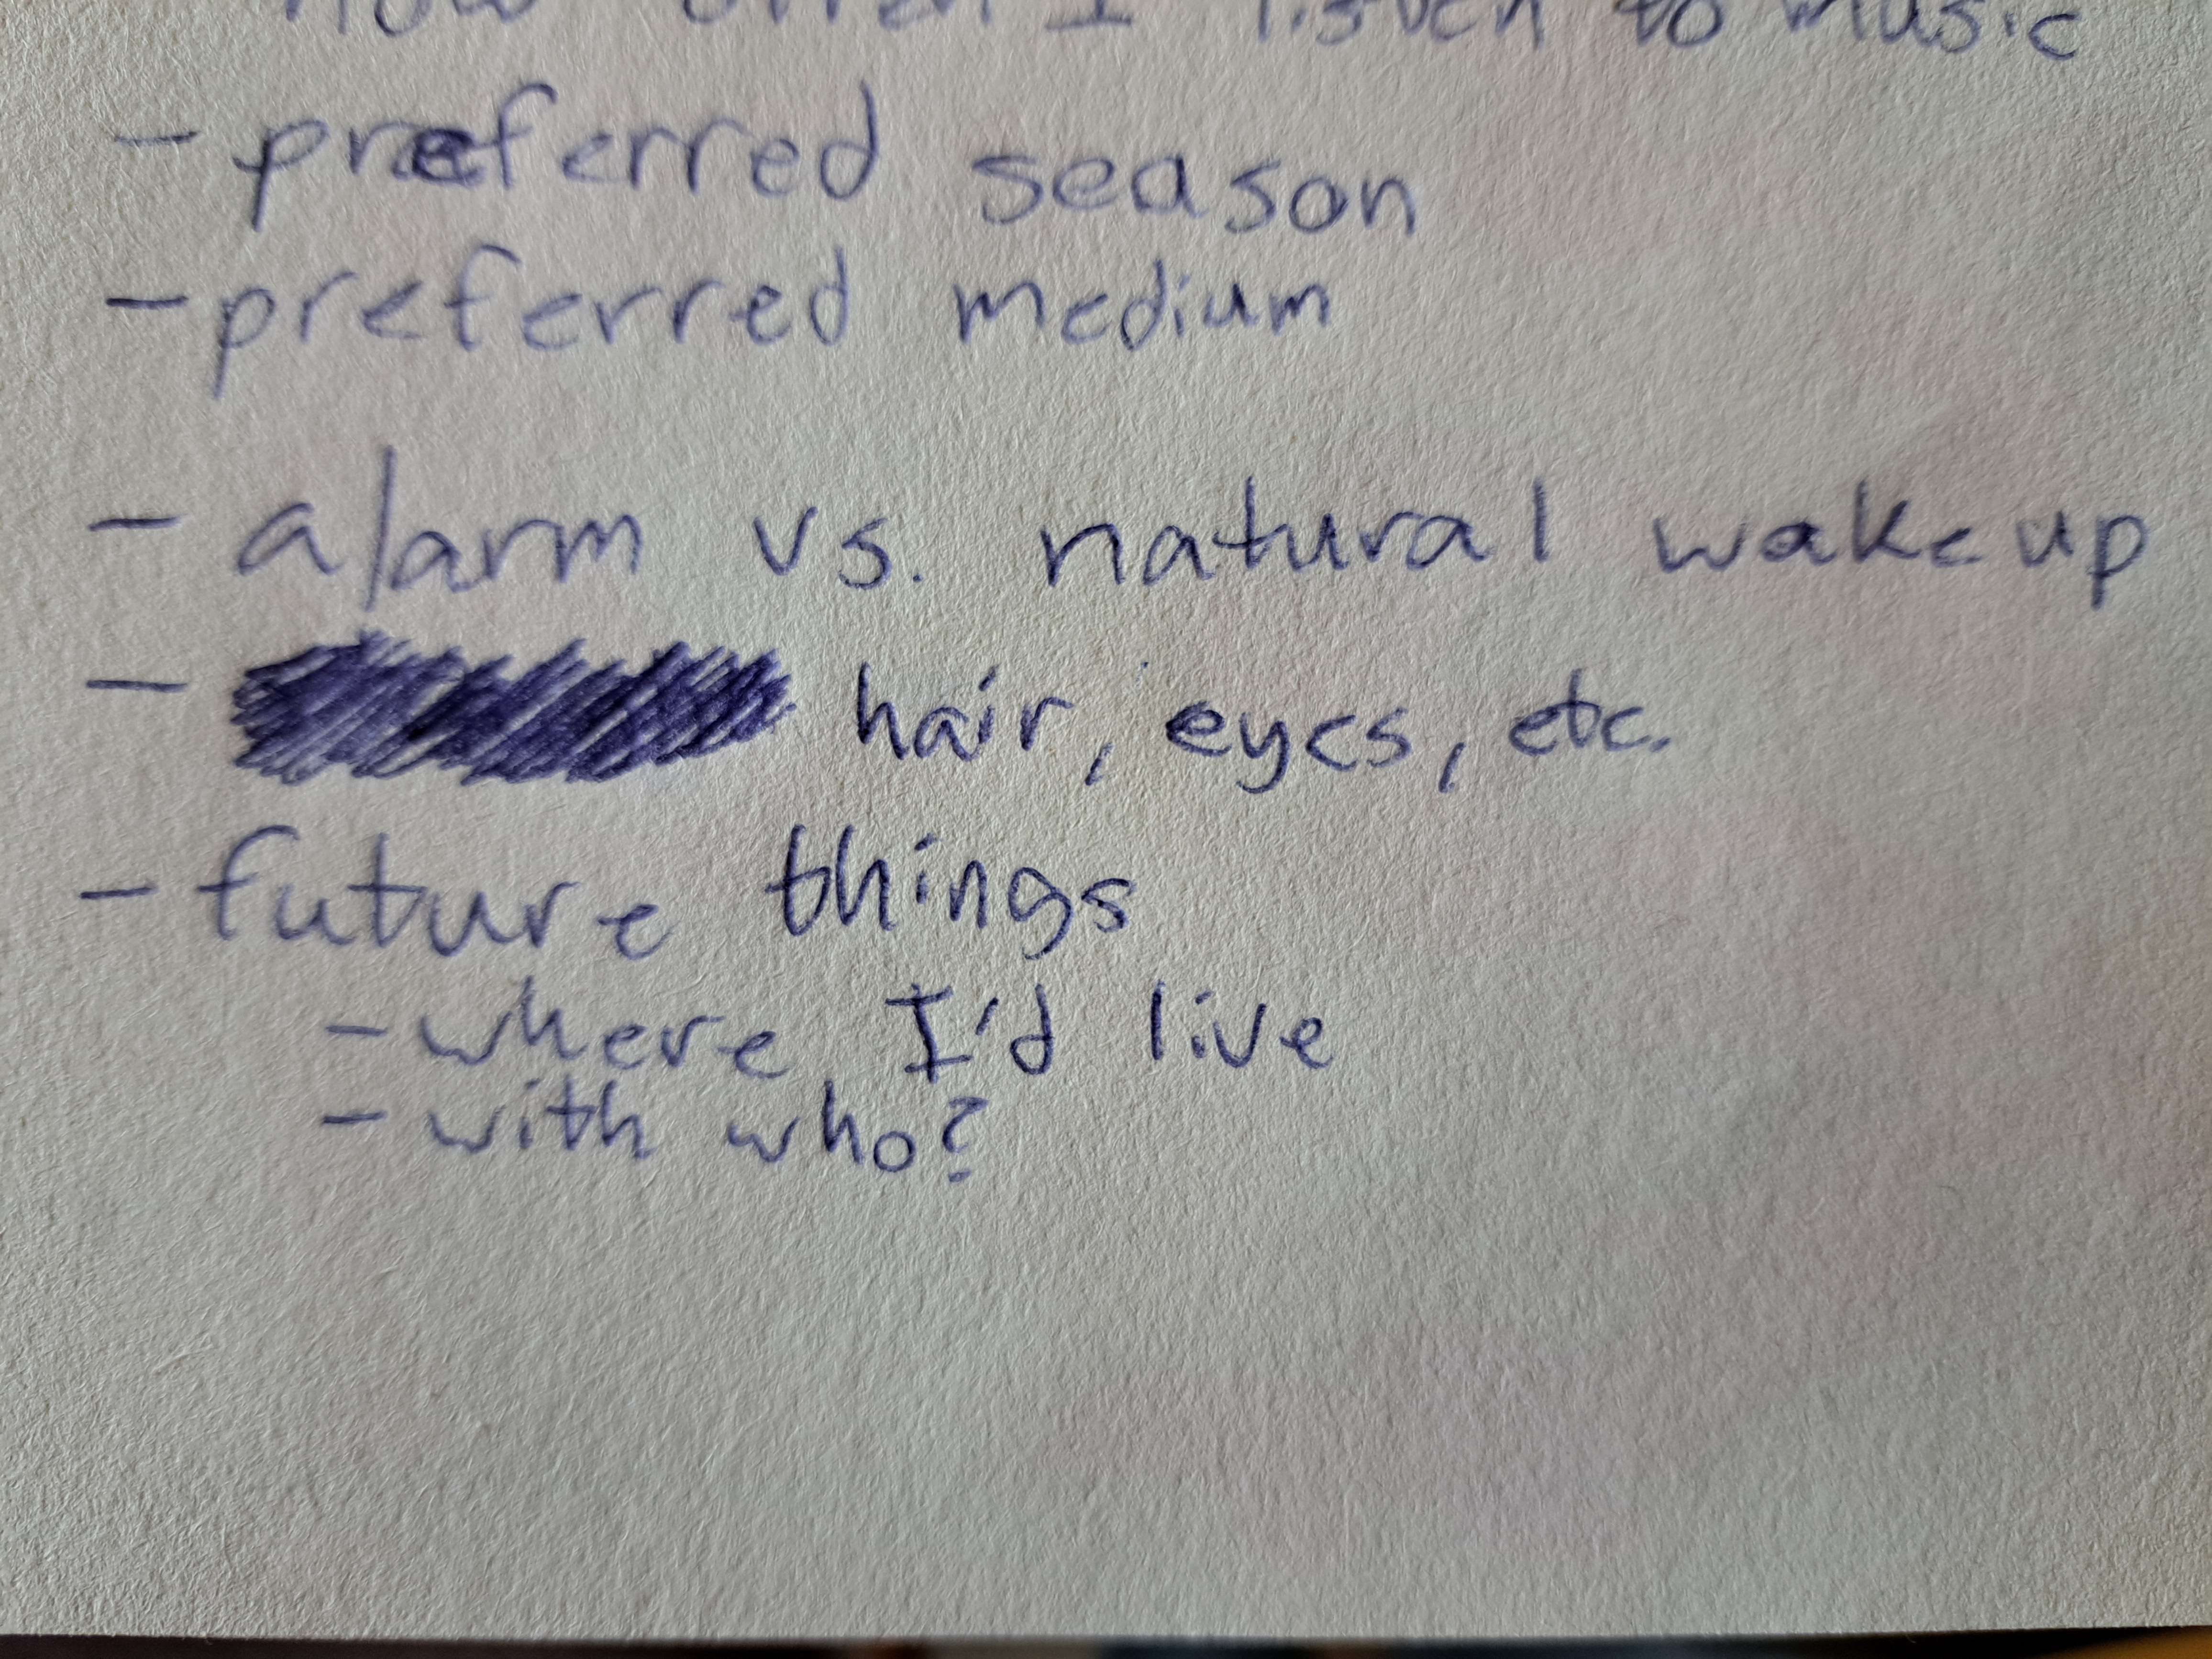 how often I listen to music
- preferred season
- preferred medium
- alarm vs. natural wakeup
- hair, eyes, etc.
- future things
- where I'd live
- with who?